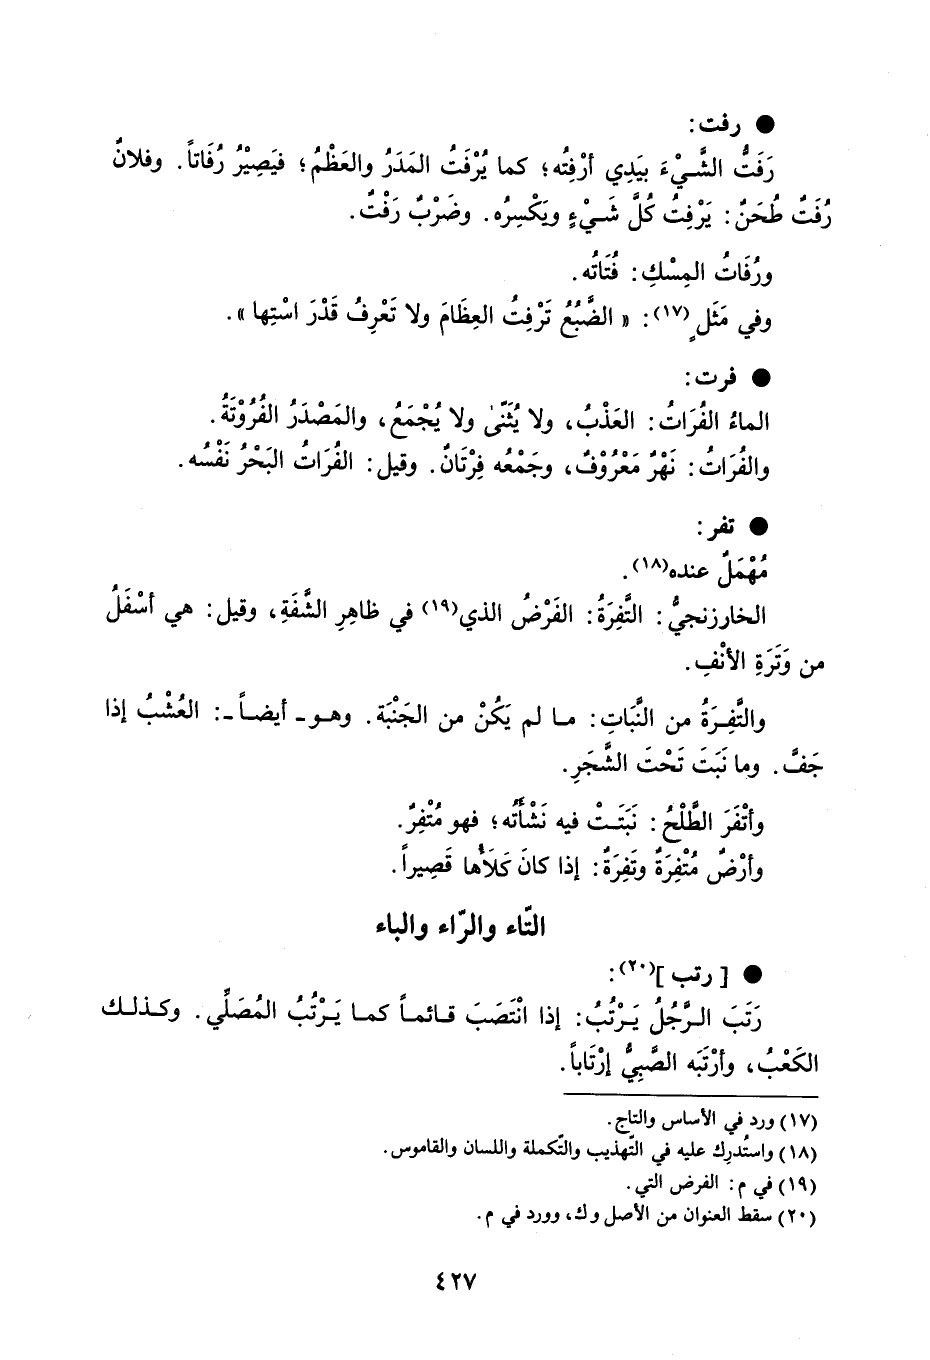 ● رفت:
رَفَتُّ الشَّيْءَ بِيَدِي أرْفِتُه؛ كما يُرْفَتُ المَدَرُ والعَظْمُ؛ فيَصِيْرُ رُفَاتاً. وفلانٌ
رُفَتٌ طُحَنٌ: يَرْفِتُ كُلَّ شَيْءٍ ويَكْسِرُه. وضَرْبٌ رَفْتٌ.
ورُفَاتُ المِسْكِ: فُتَاتُه.
وفي مَثَلٍ(١٧): « الضَّبُعُ تَرْفِتُ العِظَامَ ولا تَعْرِفُ قَدْرَ اسْتِها ».
● فرت:
الماءُ الفُرَاتُ: العَذْبُ، ولا يُثَنّىٰ ولا يُجْمَعُ، والمَصْدَرُ الفُرُوْتَةُ.
والفُرَاتُ: نَهْرٌ مَعْرُوْفٌ، وجَمْعُه فِرْتَانٌ. وقيل: الفُرَاتُ البَحْرُ نَفْسُه.
● تفر:
مُهْمَلٌ عنده(١٨).
الخارزنجيُّ: التَّفِرَةُ: الفَرْضُ الذي(١٩) في ظاهِرِ الشَّفَةِ، وقيل: هي أسْفَلُ
من وَتَرَةِ الأنْفِ.
والتَّفِرَةُ من النَّبَاتِ: ما لم يَكُنْ من الجَنْبَة. وهو ـ أيضاً ـ: العُشْبُ إذا
جَفَّ. وما نَبَتَ تَحْتَ الشَّجَرِ.
وأتْفَرَ الطَّلْحُ: نَبَتَتْ فيه نَشْأَتُه؛ فهو مُتْفِرٌ.
وأرْضٌ مُتْفِرَةٌ وتَفِرَةٌ: إذا كانَ كَلَأُها قَصِيراً.
التّاء والرّاء والباء
● [ رتب ](٢٠):
رَتَبَ الرَّجُلُ يَرْتُبُ: إذا انْتَصَبَ قائماً كما يَرْتُبُ المُصَلِّي. وكذلك
الكَعْبُ، وأرْتَبَه الصَّبِيُّ إرْتَاباً.
(١٧) ورد في الأساس والتاج.
(١٨) واستُدرِك عليه في التّهذيب والتّكملة واللسان والقاموس.
(١٩) في م: الفرض التي.
(٢٠) سقط العنوان من الأصل و ك، وورد في م.
٤٢٧